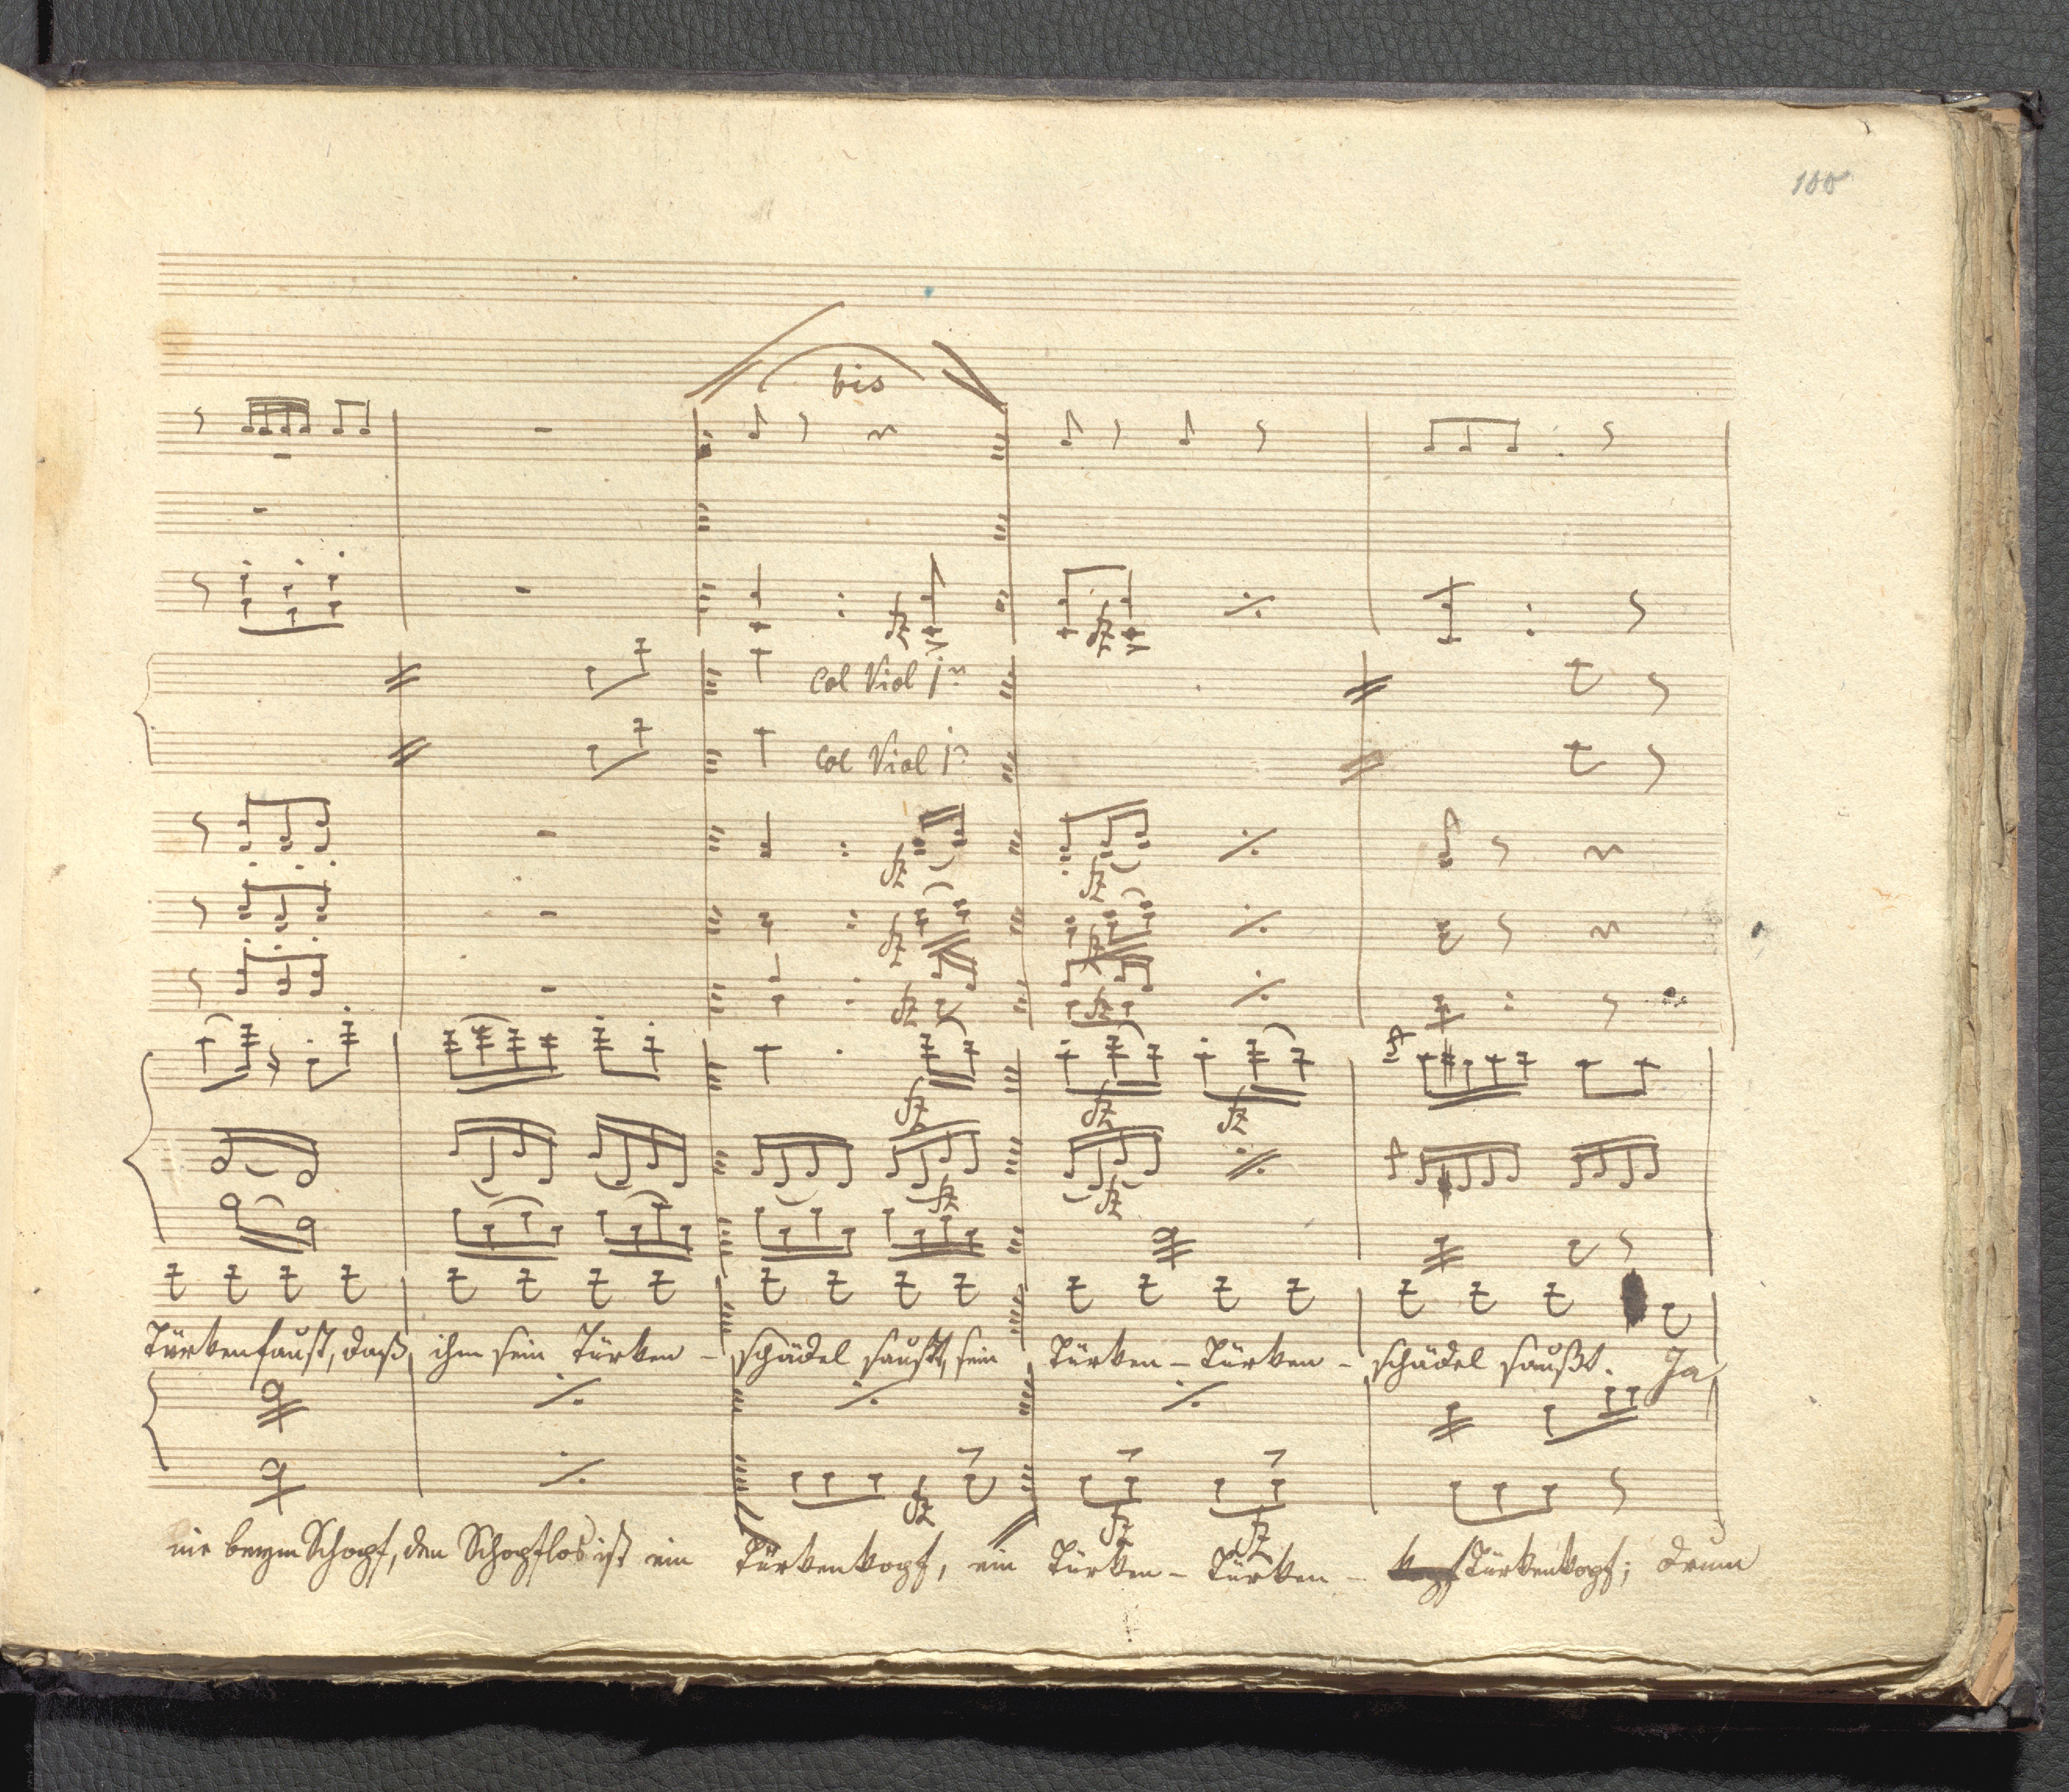 100
bis
fz
fz
col Viol 1mo
col Viol 1mo
fz fz
fz
fz fz
fz fz fz
f
fz fz
f
Türkenfaust, daß ihm sein Türken - schädel saußt, sein Türken - Türken - schädel saußt. Ja
fz fz fz
nie beym Schopf, den Schopflos ist ein Türkenkopf, ein Türken - Türken - Türkenkopf; drum